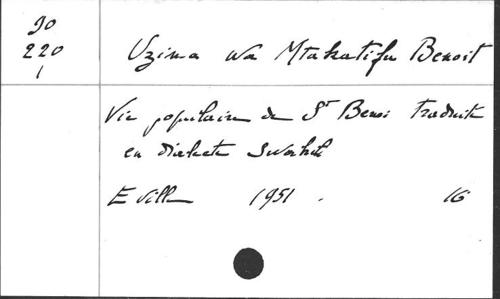 90
220
1
Uzima wa Mtakatifu Benoit
Vie populaire de St Benoi traduite
en dialecte Swahili
E ville 1951 . 16